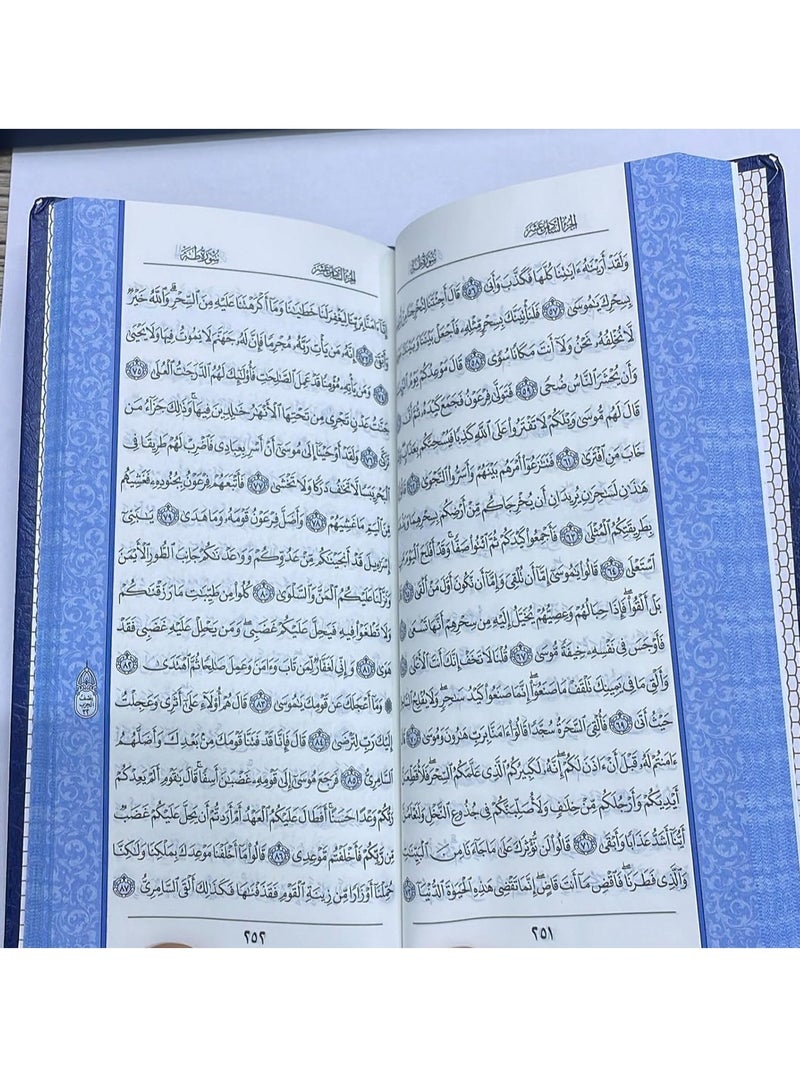 الجزء السادس عشر
سورة طه
وَلَقَدْ أَرَيْنَٰهُ ءَايَٰتِنَا كُلَّهَا فَكَذَّبَ وَأَبَىٰ ٥٦ قَالَ أَجِئْتَنَا لِتُخْرِجَنَا مِنْ
بِسِحْرِكَ يَٰمُوسَىٰ ٥٧ فَلَنَأْتِيَنَّكَ بِسِحْرٍ مِّثْلِهِۦ فَٱجْعَلْ بَيْنَنَا وَبَيْنَكَ
لَّا نُخْلِفُهُۥ نَحْنُ وَلَآ أَنتَ مَكَانًا سُوًى ٥٨ قَالَ مَوْعِدُكُمْ يَوْمُ
وَأَن يُحْشَرَ ٱلنَّاسُ ضُحًى ٥٩ فَتَوَلَّىٰ فِرْعَوْنُ فَجَمَعَ كَيْدَهُۥ ثُمَّ أَتَىٰ
قَالَ لَهُم مُّوسَىٰ وَيْلَكُمْ لَا تَفْتَرُوا۟ عَلَى ٱللَّهِ كَذِبًا فَيُسْحِتَكُم بِعَذَابٍ
خَابَ مَنِ ٱفْتَرَىٰ ٦١ فَتَنَٰزَعُوٓا۟ أَمْرَهُم بَيْنَهُمْ وَأَسَرُّوا۟ ٱلنَّجْوَىٰ
هَٰذَٰنِ لَسَٰحِرَٰنِ يُرِيدَانِ أَن يُخْرِجَاكُم مِّنْ أَرْضِكُم بِسِحْرِهِمَا
بِطَرِيقَتِكُمُ ٱلْمُثْلَىٰ ٦٣ فَأَجْمِعُوا۟ كَيْدَكُمْ ثُمَّ ٱئْتُوا۟ صَفًّا وَقَدْ أَفْلَحَ ٱلْيَوْمَ مَنِ
ٱسْتَعْلَىٰ ٦٤ قَالُوا۟ يَٰمُوسَىٰٓ إِمَّآ أَن تُلْقِىَ وَإِمَّآ أَن نَّكُونَ أَوَّلَ مَنْ أَلْقَىٰ
بَلْ أَلْقُوا۟ فَإِذَا حِبَالُهُمْ وَعِصِيُّهُمْ يُخَيَّلُ إِلَيْهِ مِن سِحْرِهِمْ أَنَّهَا تَسْعَىٰ
فَأَوْجَسَ فِى نَفْسِهِۦ خِيفَةً مُّوسَىٰ ٦٧ قُلْنَا لَا تَخَفْ إِنَّكَ أَنتَ ٱلْأَعْلَىٰ
وَأَلْقِ مَا فِى يَمِينِكَ تَلْقَفْ مَا صَنَعُوٓا۟ إِنَّمَا صَنَعُوا۟ كَيْدُ سَٰحِرٍ وَلَا يُفْلِحُ
حَيْثُ أَتَىٰ ٦٩ فَأُلْقِىَ ٱلسَّحَرَةُ سُجَّدًا قَالُوٓا۟ ءَامَنَّا بِرَبِّ هَٰرُونَ وَمُوسَىٰ
ءَامَنتُمْ لَهُۥ قَبْلَ أَنْ ءَاذَنَ لَكُمْ إِنَّهُۥ لَكَبِيرُكُمُ ٱلَّذِى عَلَّمَكُمُ ٱلسِّحْرَ فَلَأُقَطِّعَنَّ
أَيْدِيَكُمْ وَأَرْجُلَكُم مِّنْ خِلَٰفٍ وَلَأُصَلِّبَنَّكُمْ فِى جُذُوعِ ٱلنَّخْلِ وَلَتَعْلَمُنَّ
أَيُّنَآ أَشَدُّ عَذَابًا وَأَبْقَىٰ ٧١ قَالُوا۟ لَن نُّؤْثِرَكَ عَلَىٰ مَا جَآءَنَا مِنَ ٱلْبَيِّنَٰتِ
وَٱلَّذِى فَطَرَنَا فَٱقْضِ مَآ أَنتَ قَاضٍ إِنَّمَا تَقْضِى هَٰذِهِ ٱلْحَيَوٰةَ ٱلدُّنْيَآ
٢٥١
الجزء السادس عشر
سورة طه
إِنَّآ ءَامَنَّا بِرَبِّنَا لِيَغْفِرَ لَنَا خَطَٰيَٰنَا وَمَآ أَكْرَهْتَنَا عَلَيْهِ مِنَ ٱلسِّحْرِ وَٱللَّهُ خَيْرٌ
وَأَبْقَىٰٓ ٧٣ إِنَّهُۥ مَن يَأْتِ رَبَّهُۥ مُجْرِمًا فَإِنَّ لَهُۥ جَهَنَّمَ لَا يَمُوتُ فِيهَا وَلَا يَحْيَىٰ
٧٤ وَمَن يَأْتِهِۦ مُؤْمِنًا قَدْ عَمِلَ ٱلصَّٰلِحَٰتِ فَأُو۟لَٰٓئِكَ لَهُمُ ٱلدَّرَجَٰتُ ٱلْعُلَىٰ ٧٥
جَنَّٰتُ عَدْنٍ تَجْرِى مِن تَحْتِهَا ٱلْأَنْهَٰرُ خَٰلِدِينَ فِيهَا وَذَٰلِكَ جَزَآءُ مَن
تَزَكَّىٰ ٧٦ وَلَقَدْ أَوْحَيْنَآ إِلَىٰ مُوسَىٰٓ أَنْ أَسْرِ بِعِبَادِى فَٱضْرِبْ لَهُمْ طَرِيقًا فِى
ٱلْبَحْرِ يَبَسًا لَّا تَخَٰفُ دَرَكًا وَلَا تَخْشَىٰ ٧٧ فَأَتْبَعَهُمْ فِرْعَوْنُ بِجُنُودِهِۦ فَغَشِيَهُم
مِّنَ ٱلْيَمِّ مَا غَشِيَهُمْ ٧٨ وَأَضَلَّ فِرْعَوْنُ قَوْمَهُۥ وَمَا هَدَىٰ ٧٩ يَٰبَنِىٓ
إِسْرَٰٓءِيلَ قَدْ أَنجَيْنَٰكُم مِّنْ عَدُوِّكُمْ وَوَٰعَدْنَٰكُمْ جَانِبَ ٱلطُّورِ ٱلْأَيْمَنَ
وَنَزَّلْنَا عَلَيْكُمُ ٱلْمَنَّ وَٱلسَّلْوَىٰ ٨٠ كُلُوا۟ مِن طَيِّبَٰتِ مَا رَزَقْنَٰكُمْ
وَلَا تَطْغَوْا۟ فِيهِ فَيَحِلَّ عَلَيْكُمْ غَضَبِى وَمَن يَحْلِلْ عَلَيْهِ غَضَبِى فَقَدْ
هَوَىٰ ٨١ وَإِنِّى لَغَفَّارٌ لِّمَن تَابَ وَءَامَنَ وَعَمِلَ صَٰلِحًا ثُمَّ ٱهْتَدَىٰ ٨٢
۞ وَمَآ أَعْجَلَكَ عَن قَوْمِكَ يَٰمُوسَىٰ ٨٣ قَالَ هُمْ أُو۟لَآءِ عَلَىٰٓ أَثَرِى وَعَجِلْتُ
إِلَيْكَ رَبِّ لِتَرْضَىٰ ٨٤ قَالَ فَإِنَّا قَدْ فَتَنَّا قَوْمَكَ مِنۢ بَعْدِكَ وَأَضَلَّهُمُ
ٱلسَّامِرِىُّ ٨٥ فَرَجَعَ مُوسَىٰٓ إِلَىٰ قَوْمِهِۦ غَضْبَٰنَ أَسِفًا قَالَ يَٰقَوْمِ أَلَمْ يَعِدْكُمْ
رَبُّكُمْ وَعْدًا حَسَنًا أَفَطَالَ عَلَيْكُمُ ٱلْعَهْدُ أَمْ أَرَدتُّمْ أَن يَحِلَّ عَلَيْكُمْ غَضَبٌ
مِّن رَّبِّكُمْ فَأَخْلَفْتُم مَّوْعِدِى ٨٦ قَالُوا۟ مَآ أَخْلَفْنَا مَوْعِدَكَ بِمَلْكِنَا وَلَٰكِنَّا
حُمِّلْنَآ أَوْزَارًا مِّن زِينَةِ ٱلْقَوْمِ فَقَذَفْنَٰهَا فَكَذَٰلِكَ أَلْقَى ٱلسَّامِرِىُّ ٨٧
نصف
الحزب
٣٢
٢٥٢